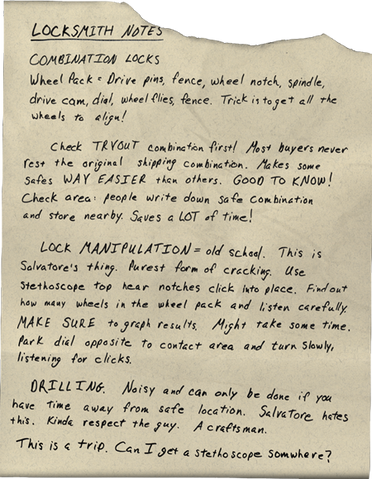 LOCKSMITH NOTES
COMBINATION LOCKS
Wheel Pack = Drive pins, fence, wheel notch, spindle,
drive cam, dial, wheel flies, fence. Trick is to get all the
wheels to align!
Check TRYOUT combination first! Most buyers never
rest the original shipping combination. Makes some
safes WAY EASIER than others. GOOD TO KNOW!
Check area: people write down safe combination
and store nearby. Saves a LOT of time!
LOCK MANIPULATION = old school. This is
Salvatore's thing. Purest form of cracking. Use
stethoscope top hear notches click into place. Find out
how many wheels in the wheel pack and listen carefully.
MAKE SURE to graph results. Might take some time.
Park dial opposite to contact area and turn slowly,
listening for clicks.
DRILLING. Noisy and can only be done if you
have time away from safe location. Salvatore hates
this. Kinda respect the guy. A craftsman.
This is a trip. Can I get a stethoscope somwhere?